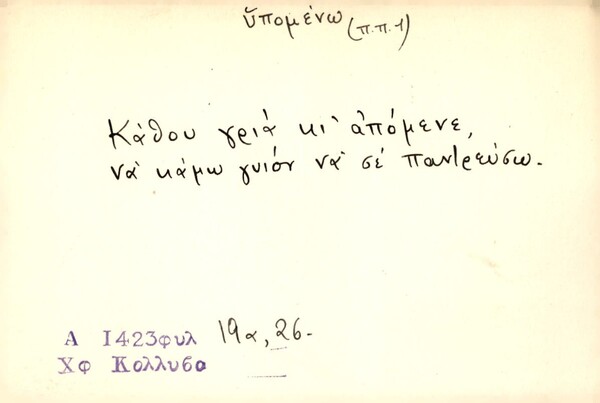 ὑπομένω (π.π.1)
Κάθου γριά κι' ἀπόμενε,
νὰ κάμω γυιόν νὰ σέ παντρεύσω.
Α 1423φυλ 19α, 26.-
Χφ Κολλυβα